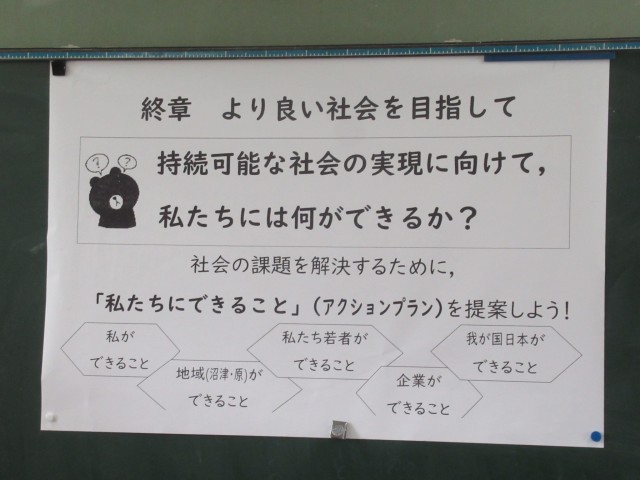 終章　より良い社会を目指して
? ?
持続可能な社会の実現に向けて,
私たちには何ができるか？
社会の課題を解決するために,
「私たちにできること」(アクションプラン)を提案しよう！
私が
できること
地域(沼津・原)が
できること
私たち若者が
できること
企業が
できること
我が国日本が
できること